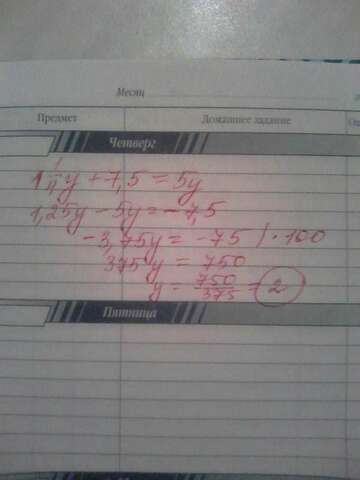 Месяц
Предмет Домашнее задание
Четверг
1 1/4 y + 7,5 = 5y
1,25y - 5y = -7,5
-3,75y = -75 | · 100
375 y = 750
y = 750/375 = 2
Пятница